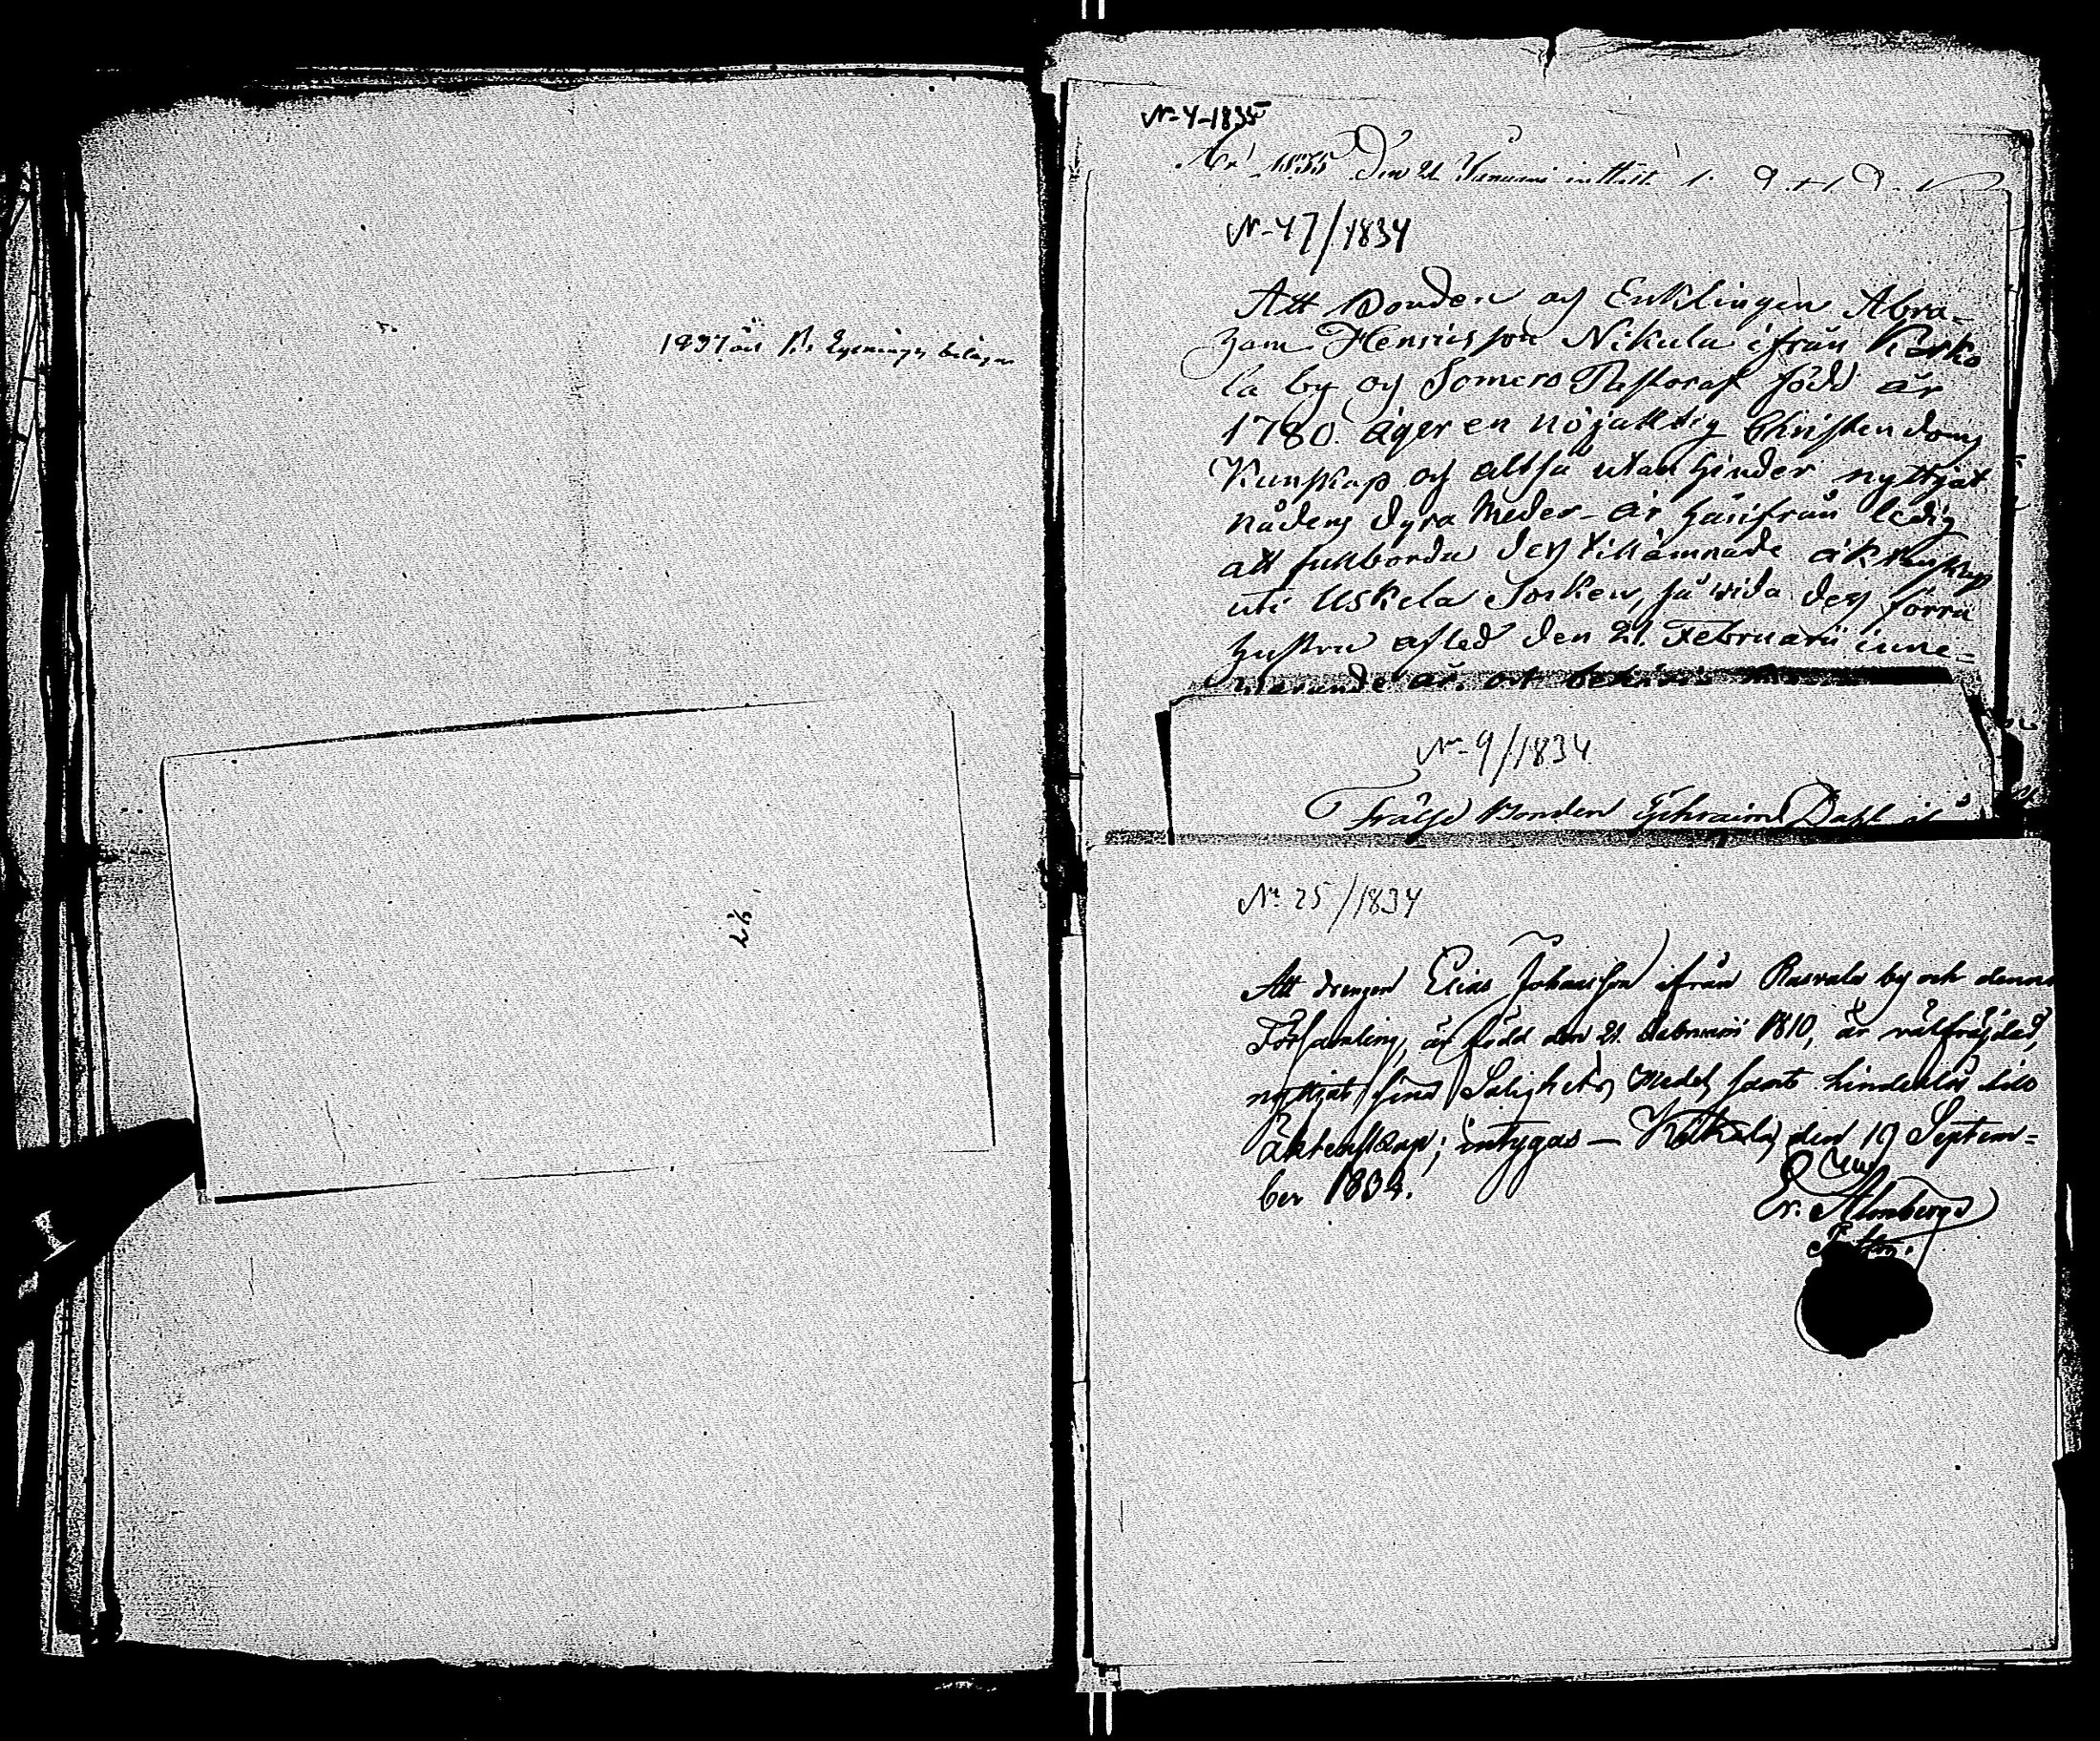 1837 års Lysnings bilagor
N-4-1835
År 1835 Den 21 Januari
N-47/1834
Att Bonden og Enklingen Abra-
ham Henricsson Nikula ifrån Kerko
la by og Somero Pastorat född år
1780. äger en nöjaktig Christendoms
Kunskap og altså utan hinder nyttjat
nådens dyra Medel - är härifrån ledig
att fullborda des tillämnade äktenskap
uti Uskela Socken, så vida des förra
hustru afled den 21. Februarii inne-
warande år, att
N-9/1834
Frälse Bonden Ephraim Dahl
No 25/1834
Att drengen Elias Johansson ifrån Rasvala by och denna
Församling, är född den 21. Februarii 1810, är välfräjdad,
nyttjat sina Salighets Medel samt hinderlös till
Äktenskap; intygas - Kitkala, den 19 Septem-
ber 1834.
Er. Almberg